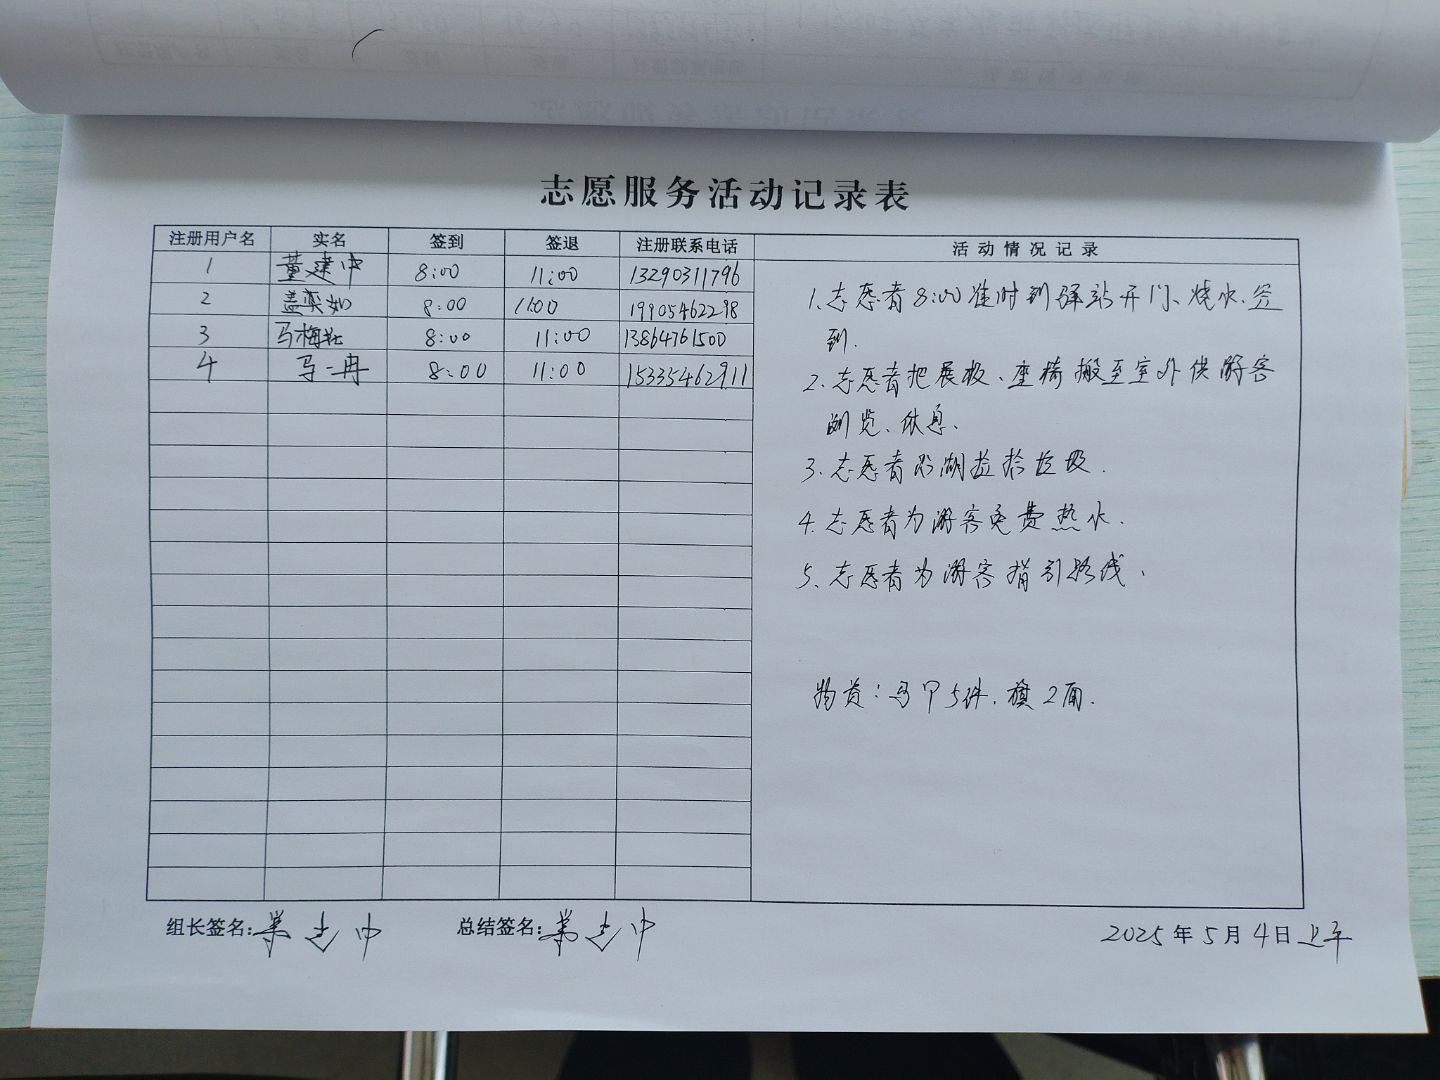 志愿服务活动记录表
注册用户名 实名 签到 签退 注册联系电话 活动情况记录
1 董建中 8:00 11:00 13290311796
2 盖奕如 8:00 11:00 19905462298
3 马梅 8:00 11:00 13864761500
4 马一冉 8:00 11:00 15335462911
1.志愿者8:00准时到驿站开门、烧水、签
到.
2.志愿者把展板、座椅搬至室外供游客
浏览、休息.
3.志愿者沿湖捡拾垃圾.
4.志愿者为游客免费热水.
5.志愿者为游客指引路线.
物资:马甲5件.旗2面.
组长签名:董建中 总结签名:董建中 2025年5月4日上午